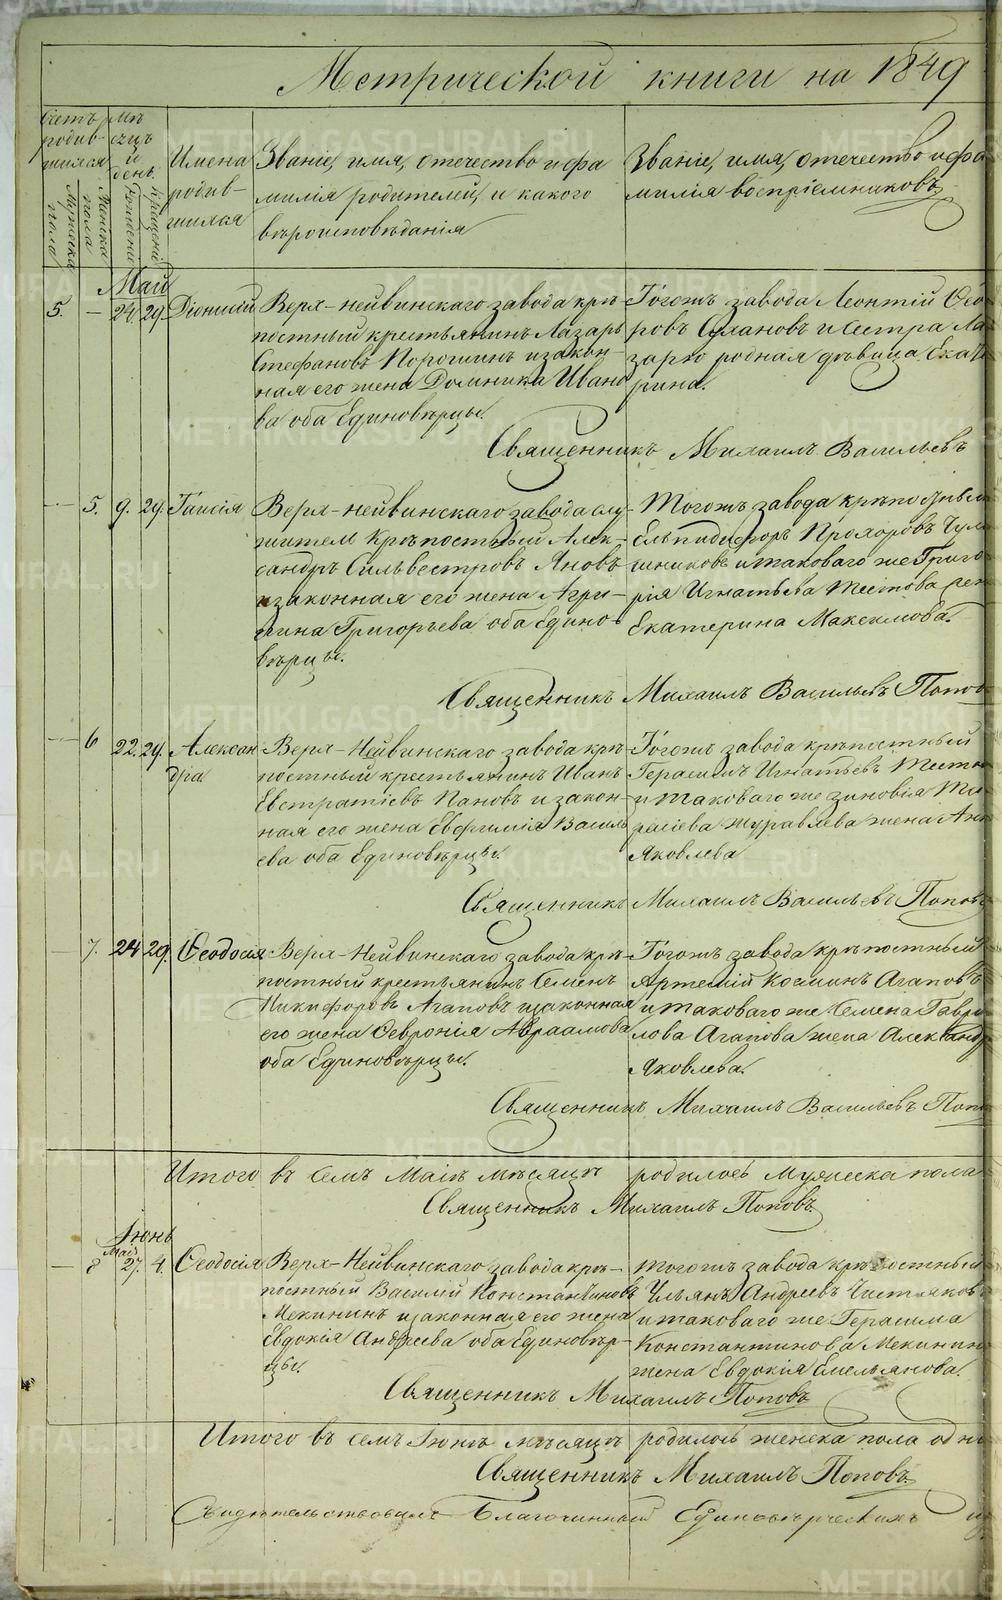 Метрической книги на 1849
Счетъ родив-шихся
Мужеска пола
Женска пола
Мѣсяцъ и день
Рожденія
Крещенія
Имена родив-шихся
Званіе, имя, отечество и фа-
милія родителей, и какого
вѣроисповѣданія
Званіе, имя, отечество и фа
милія воспріемниковъ
Май
5. — 24. 29. Діонисій
Верх-нейвинскаго завода крѣ-
постный крестьянинъ Лазарь
Стефановъ Порошинъ и закон-
ная его жена Домника Ивано
ва оба Единовѣрцы.
Тогожъ завода Леонтій Ѳео
ровъ и Сестра Ла
зарю родная дѣвица Екате
рина.
Священникъ Михаилъ Васильевъ
— 5. 9. 29. Таисія
Верх-нейвинскаго завода слу-
жителъ Крѣпостный Алек-
сандръ Сильвестровъ Яновъ
и законная его жена Агри-
пина Григорьева оба Едино-
вѣрцы.
Тогожъ завода крѣпостный
Ельпидифоръ Прохоровъ
и таковаго же Григо
рія Игнатьева
Екатерина Максимова.
Священникъ Михаилъ Васильевъ Попов
— 6 22. 29. Алексан
дра
Верх-Нейвинскаго завода крѣ-
постный крестьянинъ Иванъ
Евстратіевъ Пановъ и закон-
ная его жена Евфимія Василь
ева оба Единовѣрцы.
Тогожъ завода крѣпостный
Герасимъ Игнатьевъ
и таковаго же Зиновія Та
расіева Журавлева жена Анн
Яковлева
Священникъ Михаилъ Васильевъ Поповъ
— 7. 24 29. Ѳеодосія
Верх-Нейвинскаго завода крѣ-
постный крестьянинъ Семенъ
Никифоровъ Агаповъ и законная
его жена Ѳевронія Авраамова
оба Единовѣрцы.
Тогожъ завода крѣпостный
Артемій Косминъ Агаповъ
и таковаго же Семена Гаври
лова Агапова жена Александр
Яковлева.
Священникъ Михаилъ Васильевъ Попо
Итого въ семъ Маіѣ мѣсяцѣ родилось Мужеска пола
Священникъ Михаилъ Поповъ
Іюнь
Маія
— 8 27. 4. Ѳеодосія
Верх-Нейвинскаго завода крѣ-
постный Василій Константиновъ
Мекининъ и законная его жена
Евдокія Андреева оба Единовѣр-
цы.
Тогожъ завода крѣпостный
Ульянъ Андреевъ Чистяковъ
и таковаго же Герасима
Константинова Мекинина
жена Евдокія Емельянова.
Священникъ Михаилъ Поповъ
Итого въ семъ Іюнѣ мѣсяцѣ родилось женска пола одн
Священникъ Михаилъ Поповъ
Свидѣтельствовалъ Благочинный Единовѣрческихъ
METRIKI.GASO-URAL.RU